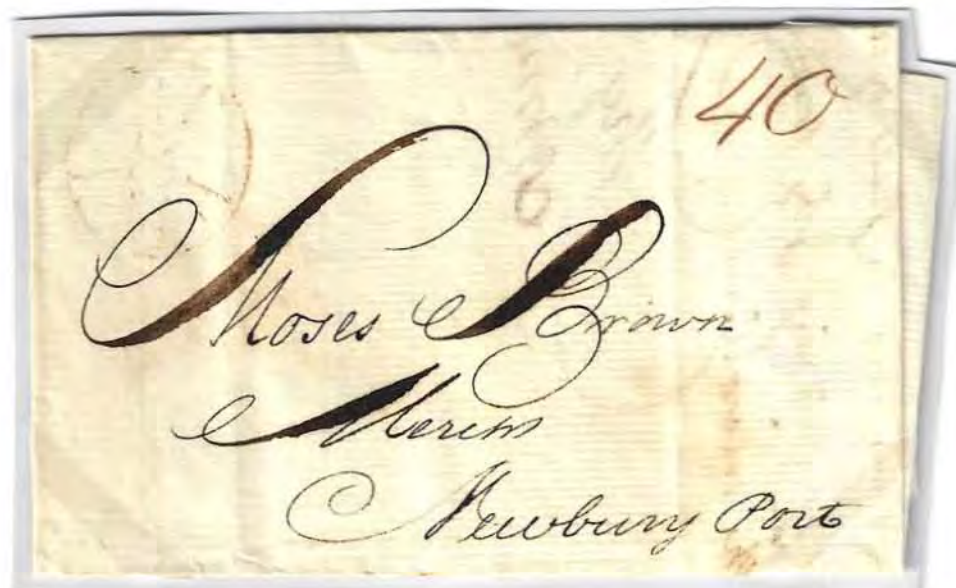 40
Moses Brown
Mercht
Newbury Port